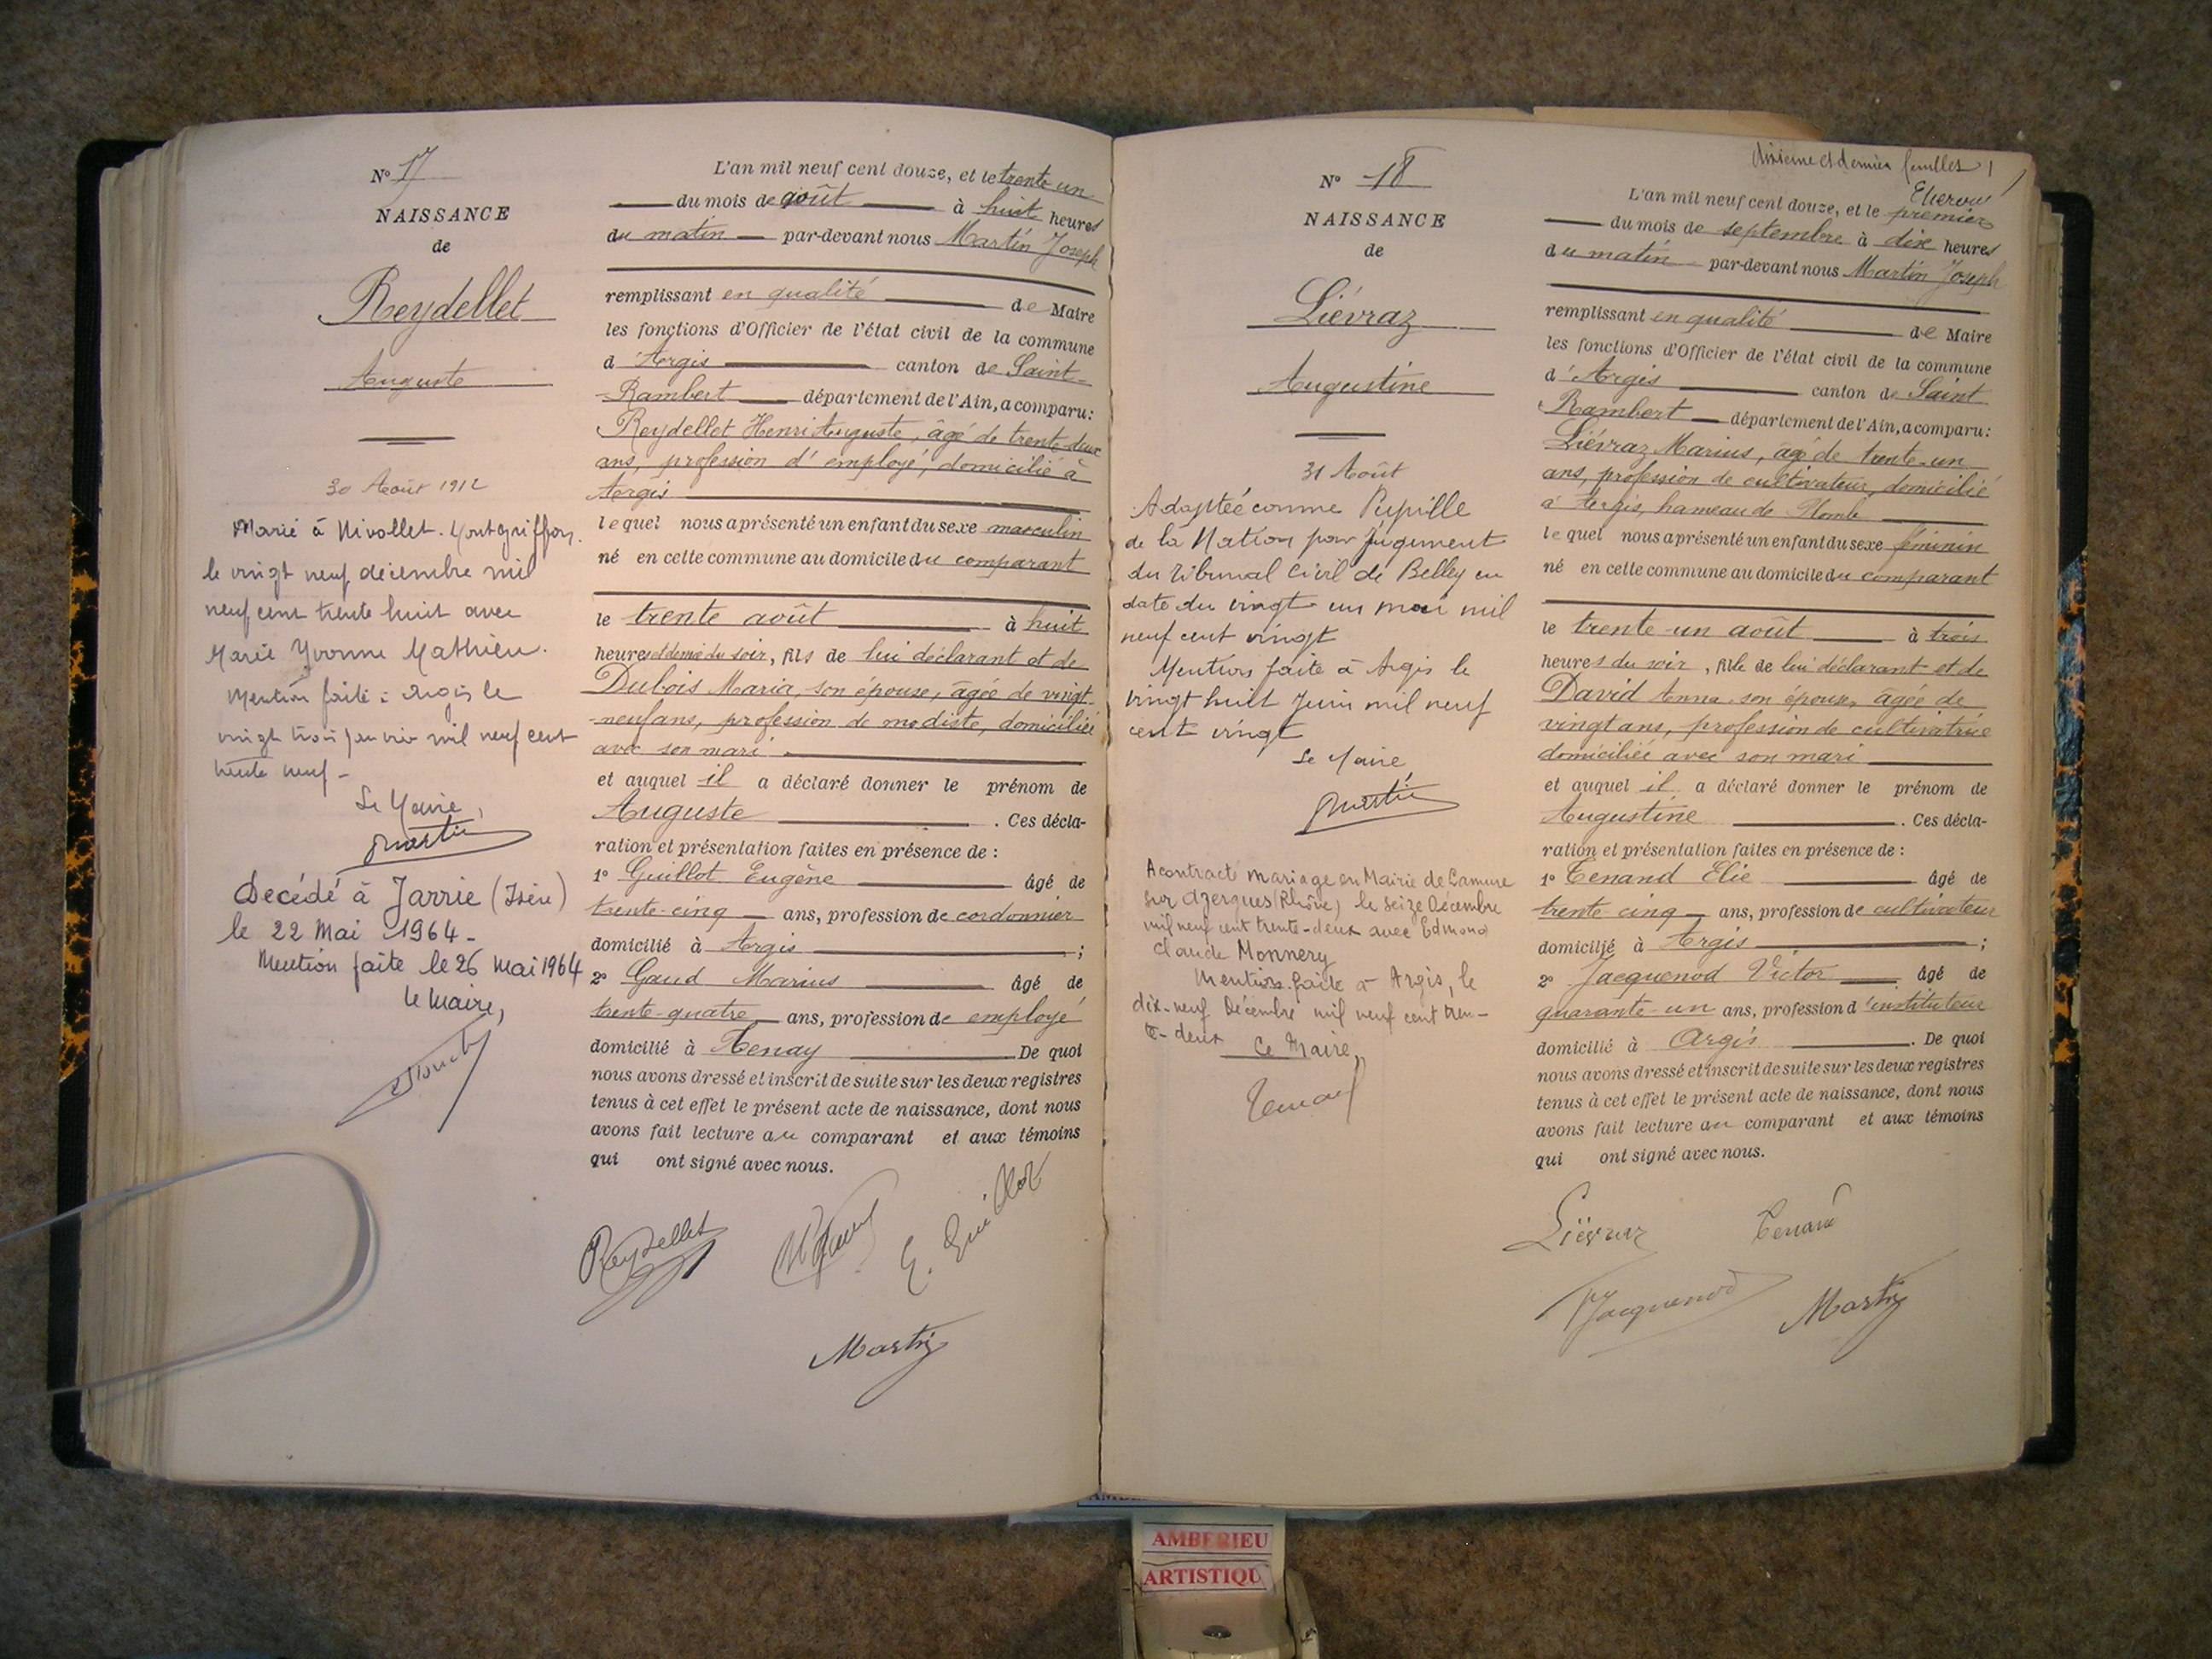 N° 17
NAISSANCE
de
Reydellet
Auguste
30 Août 1912
Marié à Nivollet-Montgriffon
le vingt neuf décembre mil
neuf cent trente huit avec
Marie Yvonne Mathieu.
Mention faite à Argis le
vingt trois janvier mil neuf cent
trente neuf-
Le Maire,
Martin
Decédé à Jarrie (Isère)
le 22 Mai 1964-
Mention faite le 26 Mai 1964
le Maire,
L'an mil neuf cent douze, et le trente un
du mois de août à huit heures
du matin par-devant nous Martin Joseph
remplissant en qualité de Maire
les fonctions d'Officier de l'état civil de la commune
d'Argis canton de Saint-
Rambert département de l'Ain, a comparu:
Reydellet Henri Auguste, âgé de trente-deux
ans, profession d'employé, domicilié à
Argis
lequel nous a présenté un enfant du sexe masculin
né en cette commune au domicile du comparant
le trente août à huit
heures et demie du soir, fils de lui déclarant et de
Dubois Maria, son épouse, âgée de vingt-
neuf ans, profession de modiste, domiciliée
avec son mari
et auquel il a déclaré donner le prénom de
Auguste . Ces décla-
ration et présentation faites en présence de :
1° Guillot Eugène âgé de
trente-cinq ans, profession de cordonnier
domicilié à Argis ;
2° Gaud Marius âgé de
trente-quatre ans, profession de employé
domicilié à Tenay De quoi
nous avons dressé et inscrit de suite sur les deux registres
tenus à cet effet le présent acte de naissance, dont nous
avons fait lecture au comparant et aux témoins
qui ont signé avec nous.
Reydellet E. Guillot
Martin
N° 18
NAISSANCE
de
Liévraz
Augustine
31 Août
Adoptée comme Pupille
de la Nation par jugement
du Tribunal Civil de Belley en
date du vingt un mai mil
neuf cent vingt
Mention faite à Argis le
vingt huit Juin mil neuf
cent vingt
Le Maire,
Martin
A contracté mariage en Mairie de Lamure
sur Azergues (Rhône) le seize Décembre
mil neuf cent trente-deux avec Edmond
Claude Monnery
Mention faite à Argis, le
dix-neuf Décembre mil neuf cent tren-
te-deux Le Maire,
Tenand
dixième et dernier feuillet
L'an mil neuf cent douze, et le premier
du mois de septembre à dix heures
du matin par-devant nous Martin Joseph
remplissant en qualité de Maire
les fonctions d'Officier de l'état civil de la commune
d'Argis canton de Saint
Rambert département de l'Ain, a comparu:
Liévraz Marius, âgé de trente-un
ans, profession de cultivateur, domicilié
à Argis, hameau de Plomb
lequel nous a présenté un enfant du sexe féminin
né en cette commune au domicile du comparant
le trente-un août à trois
heures du soir, fille de lui déclarant et de
David Anna son épouse, âgée de
vingt ans, profession de cultivatrice
domiciliée avec son mari
et auquel il a déclaré donner le prénom de
Augustine . Ces décla-
ration et présentation faites en présence de :
1° Tenand Elie âgé de
trente cinq ans, profession de cultivateur
domicilié à Argis ;
2° Jacquenod Victor âgé de
quarante-un ans, profession d'instituteur
domicilié à Argis . De quoi
nous avons dressé et inscrit de suite sur les deux registres
tenus à cet effet le présent acte de naissance, dont nous
avons fait lecture au comparant et aux témoins
qui ont signé avec nous.
Liévraz Tenand
Jacquenod Martin
AMBERIEU
ARTISTIQU